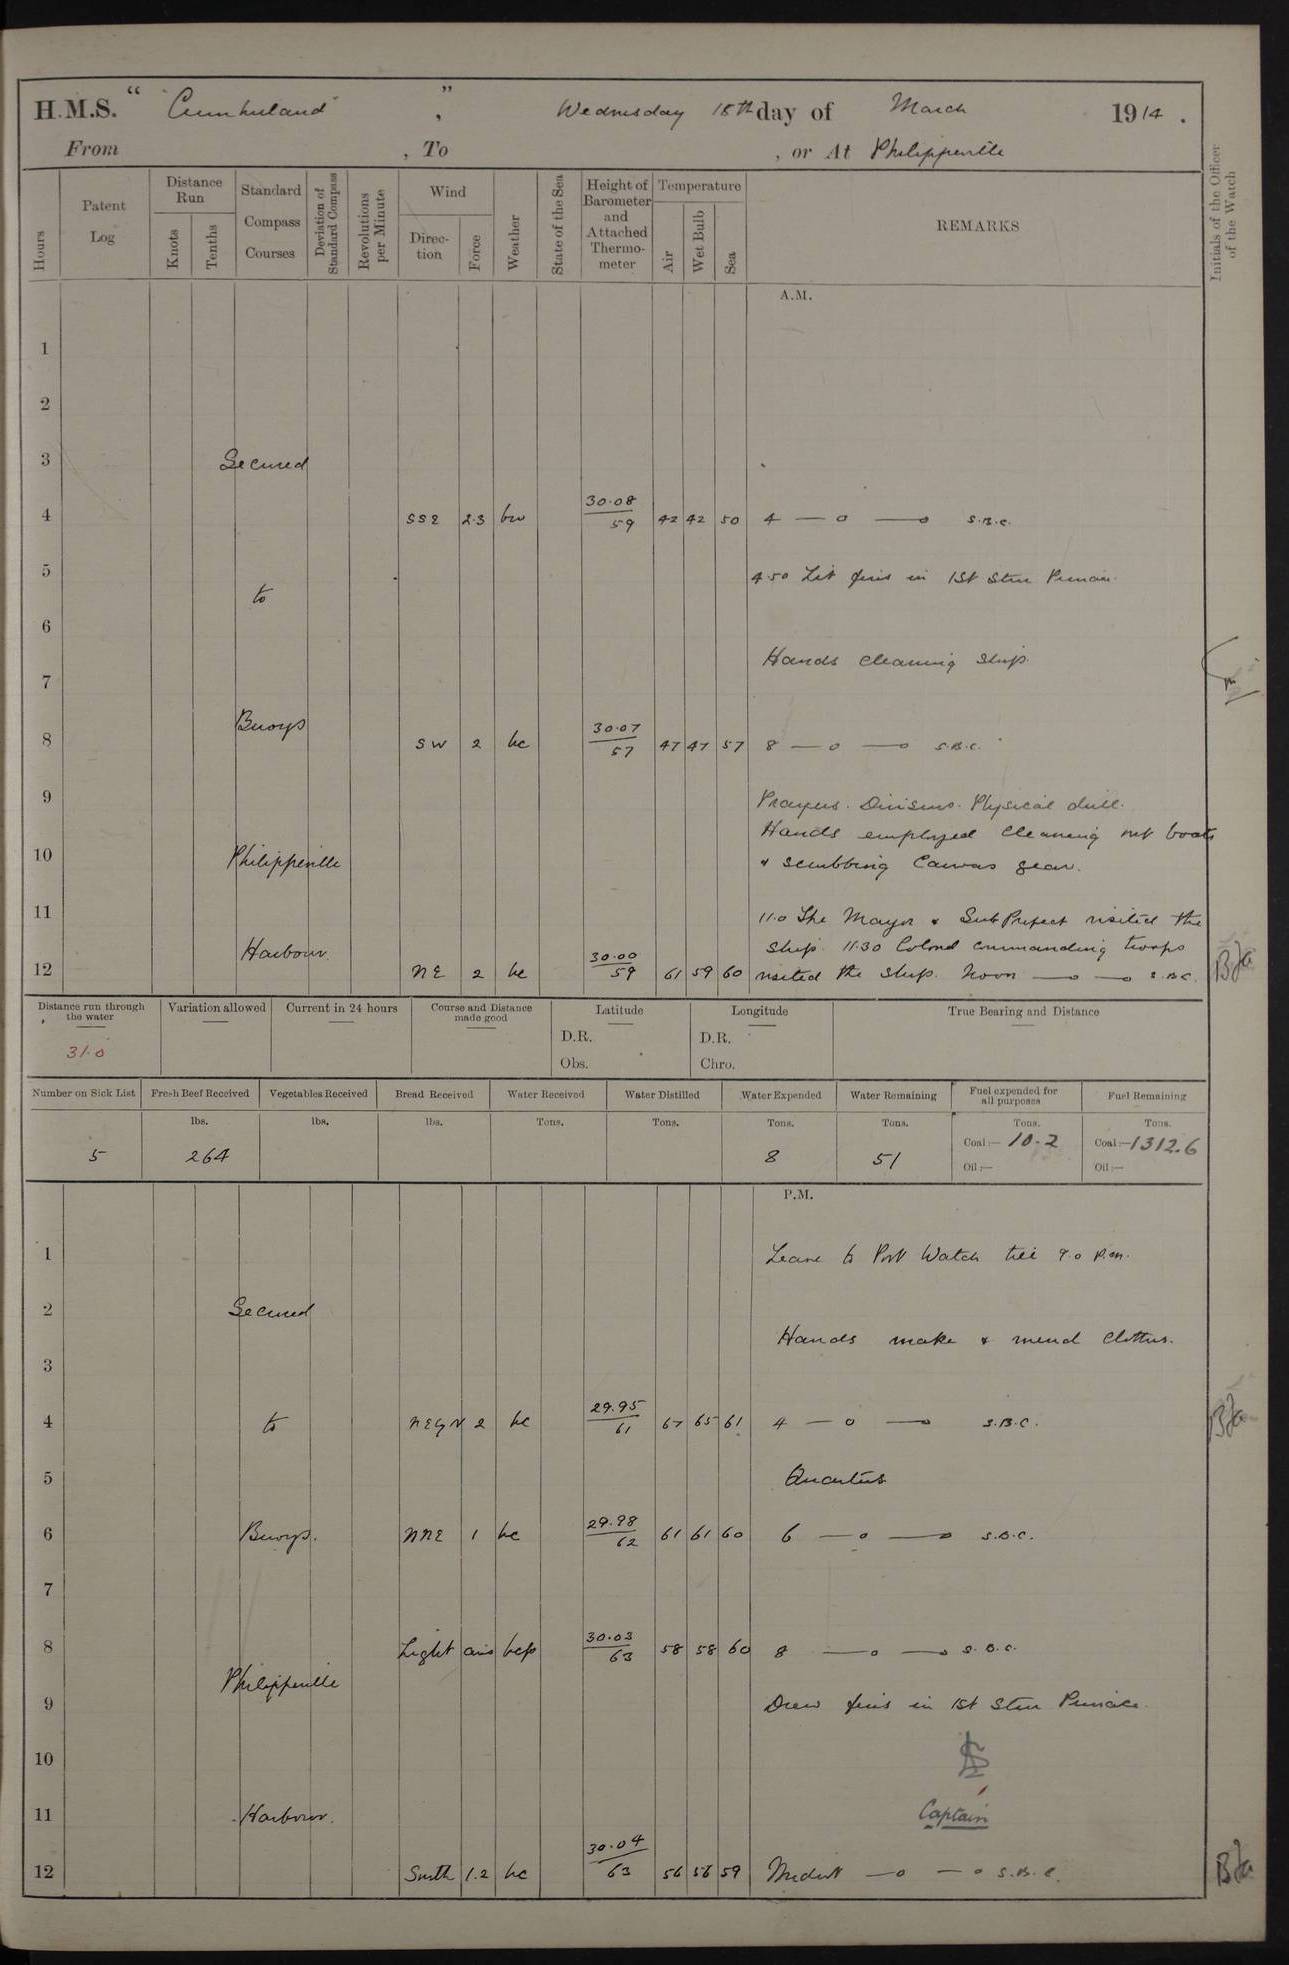 H.M.S. “ Cumberland ” , Wednesday 18th day of March 1914 .
From , To , or At Philippeville
Hours
Patent Log
Distance Run
Knots
Tenths
Standard Compass Courses
Deviation of Standard Compass
Revolutions per Minute
Wind
Direction
Force
Weather
State of the Sea
Height of Barometer and Attached Thermometer
Temperature
Air
Wet Bulb
Sea
REMARKS
Initials of the Officer of the Watch
A.M.
1
2
3 Secured
4 SSE 2.3 bw 30.08 59 42 42 50 4 — o — o S.B.C.
5 4.50 Lit fires in 1st Stm Pinnace.
to
6
Hands cleaning ship.
7
Buoys
8 SW 2 bc 30.07 57 47 47 57 8 — o — o S.B.C.
9 Prayers. Divisions. Physical drill.
Hands employed cleaning out boats
10 Philippeville & scrubbing Canvas gear.
11 11.0 The Mayor & Sub Prefect visited the
Harbour. Ship. 11.30 Colonel commanding troops
12 NE 2 bc 30.00 59 61 59 60 visited the ship. Noon — o — o S.B.C.
Distance run through the water
Variation allowed
Current in 24 hours
Course and Distance made good
Latitude
Longitude
True Bearing and Distance
31.0
D.R. D.R.
Obs. Chro.
Number on Sick List
Fresh Beef Received
Vegetables Received
Bread Received
Water Received
Water Distilled
Water Expended
Water Remaining
Fuel expended for all purposes
Fuel Remaining
lbs. lbs. lbs. Tons. Tons. Tons. Tons. Tons. Tons.
5 264 8 51 Coal:— 10.2 Coal:— 1312.6
Oil:— Oil:—
P.M.
1 Leave to Port Watch till 9.0 p.m.
2 Secured
Hands make & mend clothes.
3
4 to NEbyN 2 bc 29.95 61 67 65 61 4 — o — o S.B.C.
5 Quarters
6 Buoys. NNE 1 bc 29.98 62 61 61 60 6 — o — o S.B.C.
7
8 Light airs bcp 30.03 63 58 58 60 8 — o — o S.B.C.
Philippeville
9 Drew fires in 1st Stm Pinnace.
10
11 Harbour. Captain
12 South 1.2 bc 30.04 63 56 56 59 Midnt — o — o S.B.C.